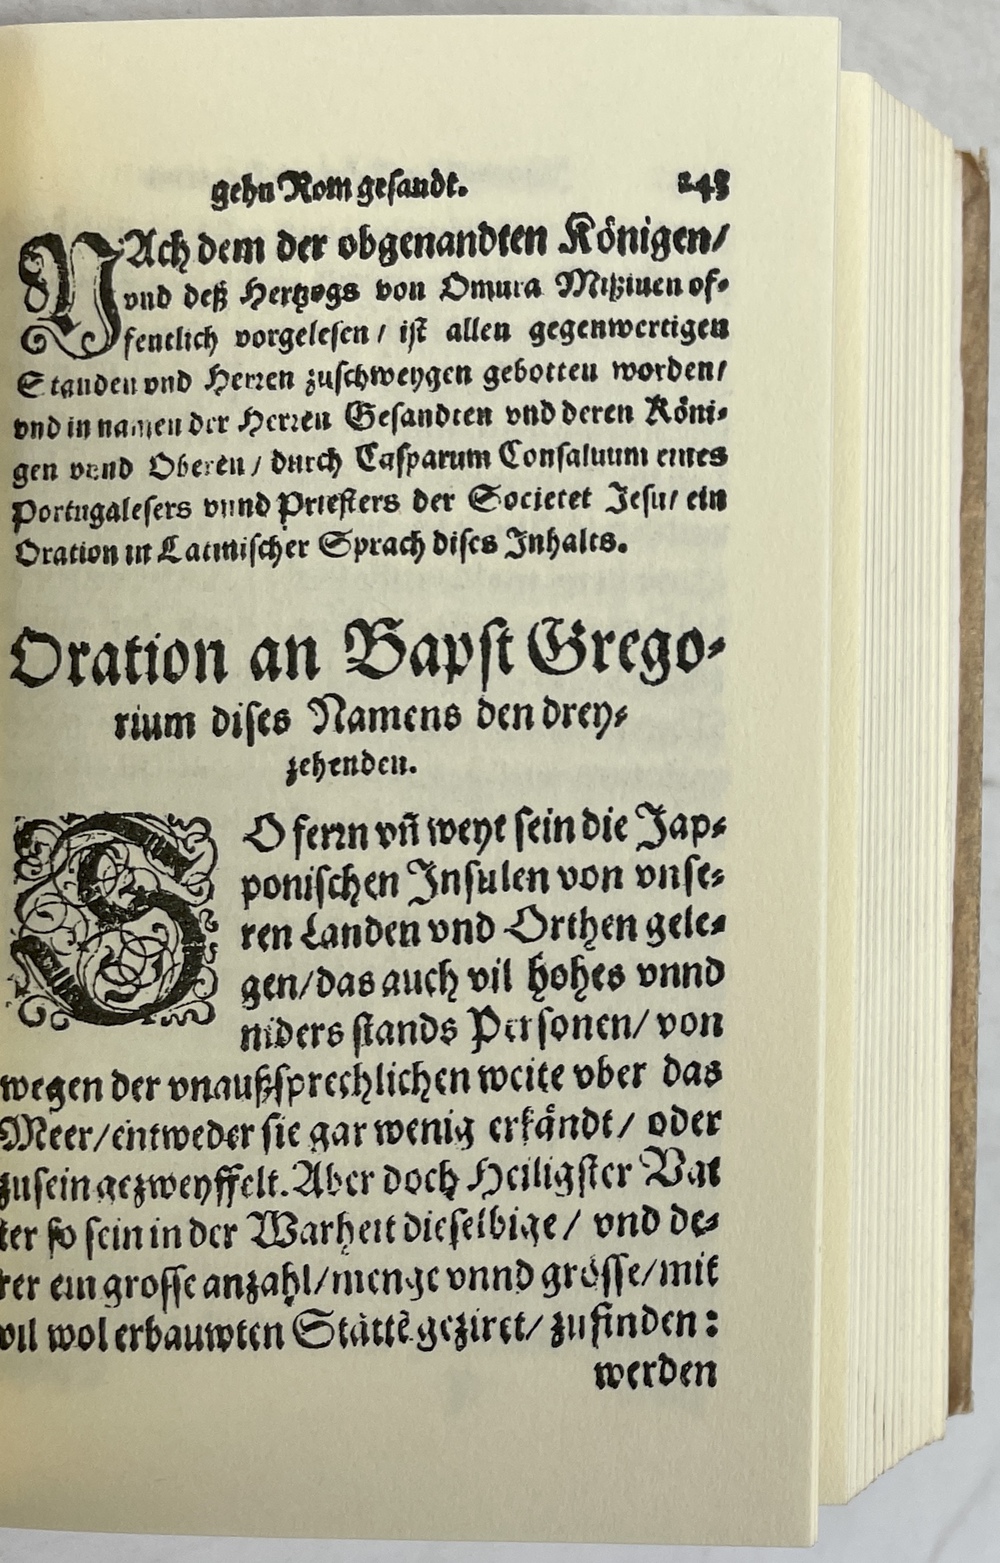 gehn Rom gesandt. 245
NAch dem der obgenandten Königen/
vnd deß Hertzogs von Omura Mißiuen of-
fentlich vorgelesen / ist allen gegenwertigen
Standen vnd Herren zuschweygen gebotten worden/
vnd in namen der Herren Gesandten vnd deren Köni-
gen vnnd Oberen / durch Casparum Consaluum eines
Portugalesers vnnd Priesters der Societet Jesu/ ein
Oration in Latinischer Sprach dises Inhalts.
Oration an Bapst Grego-
rium dises Namens den drey-
zehenden.
SO ferrn vñ weyt sein die Jap-
ponischen Insulen von vnse-
ren Landen vnd Orthen gele-
gen/das auch vil hohes vnnd
niders stands Personen/ von
wegen der vnaußsprechlichen weite vber das
Meer/entweder sie gar wenig erkändt/ oder
zu sein gezweyffelt. Aber doch Heiligster Vat
ter so sein in der Warheit dieselbige / vnd de-
rer ein grosse anzahl/menge vnnd grösse/mit
vil wol erbauwten Stättẽ geziret/ zu finden:
werden